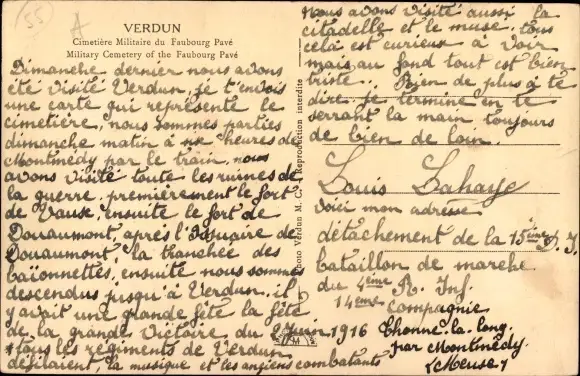 55
A
VERDUN
Cimetière Militaire du Faubourg Pavé
Military Cemetery of the Faubourg Pavé
Dimanche dernier nous avons
été visité Verdun, je t'envois
une carte qui représente le
cimetière, nous sommes parties
dimanche matin à heures de
Montmédy par le train, nous
avons visité toute les ruines de
la guerre. premièrement le fort
de Vause, ensuite le fort de
Douaumont, après l'Ossuaire de
Douaumont, la tranchée des
baïonnettes, ensuite nous sommes
descendus jusqu'à Verdun. il
y avait une grande fête la fête
de la grande victoire du Juin 1916
tous les régiments de Verdun
défilaient, la musique et les anciens combatants
Photo Verdun M. C. Reproduction interdite
Nous avons visité aussi la
citadelle et le muse. tous
cela est curieux à voir
mais au fond tout est bien
triste. Rien de plus à te
dire je termine en te
serrant la main toujours
de bien de loin.
Louis Lahaye
Voici mon adresse
détachement de la 15ème
bataillon de marche
du 4ème R. Inf.
14eme Compagnie
Chonne-la-long.
par Montmédy
Meuse